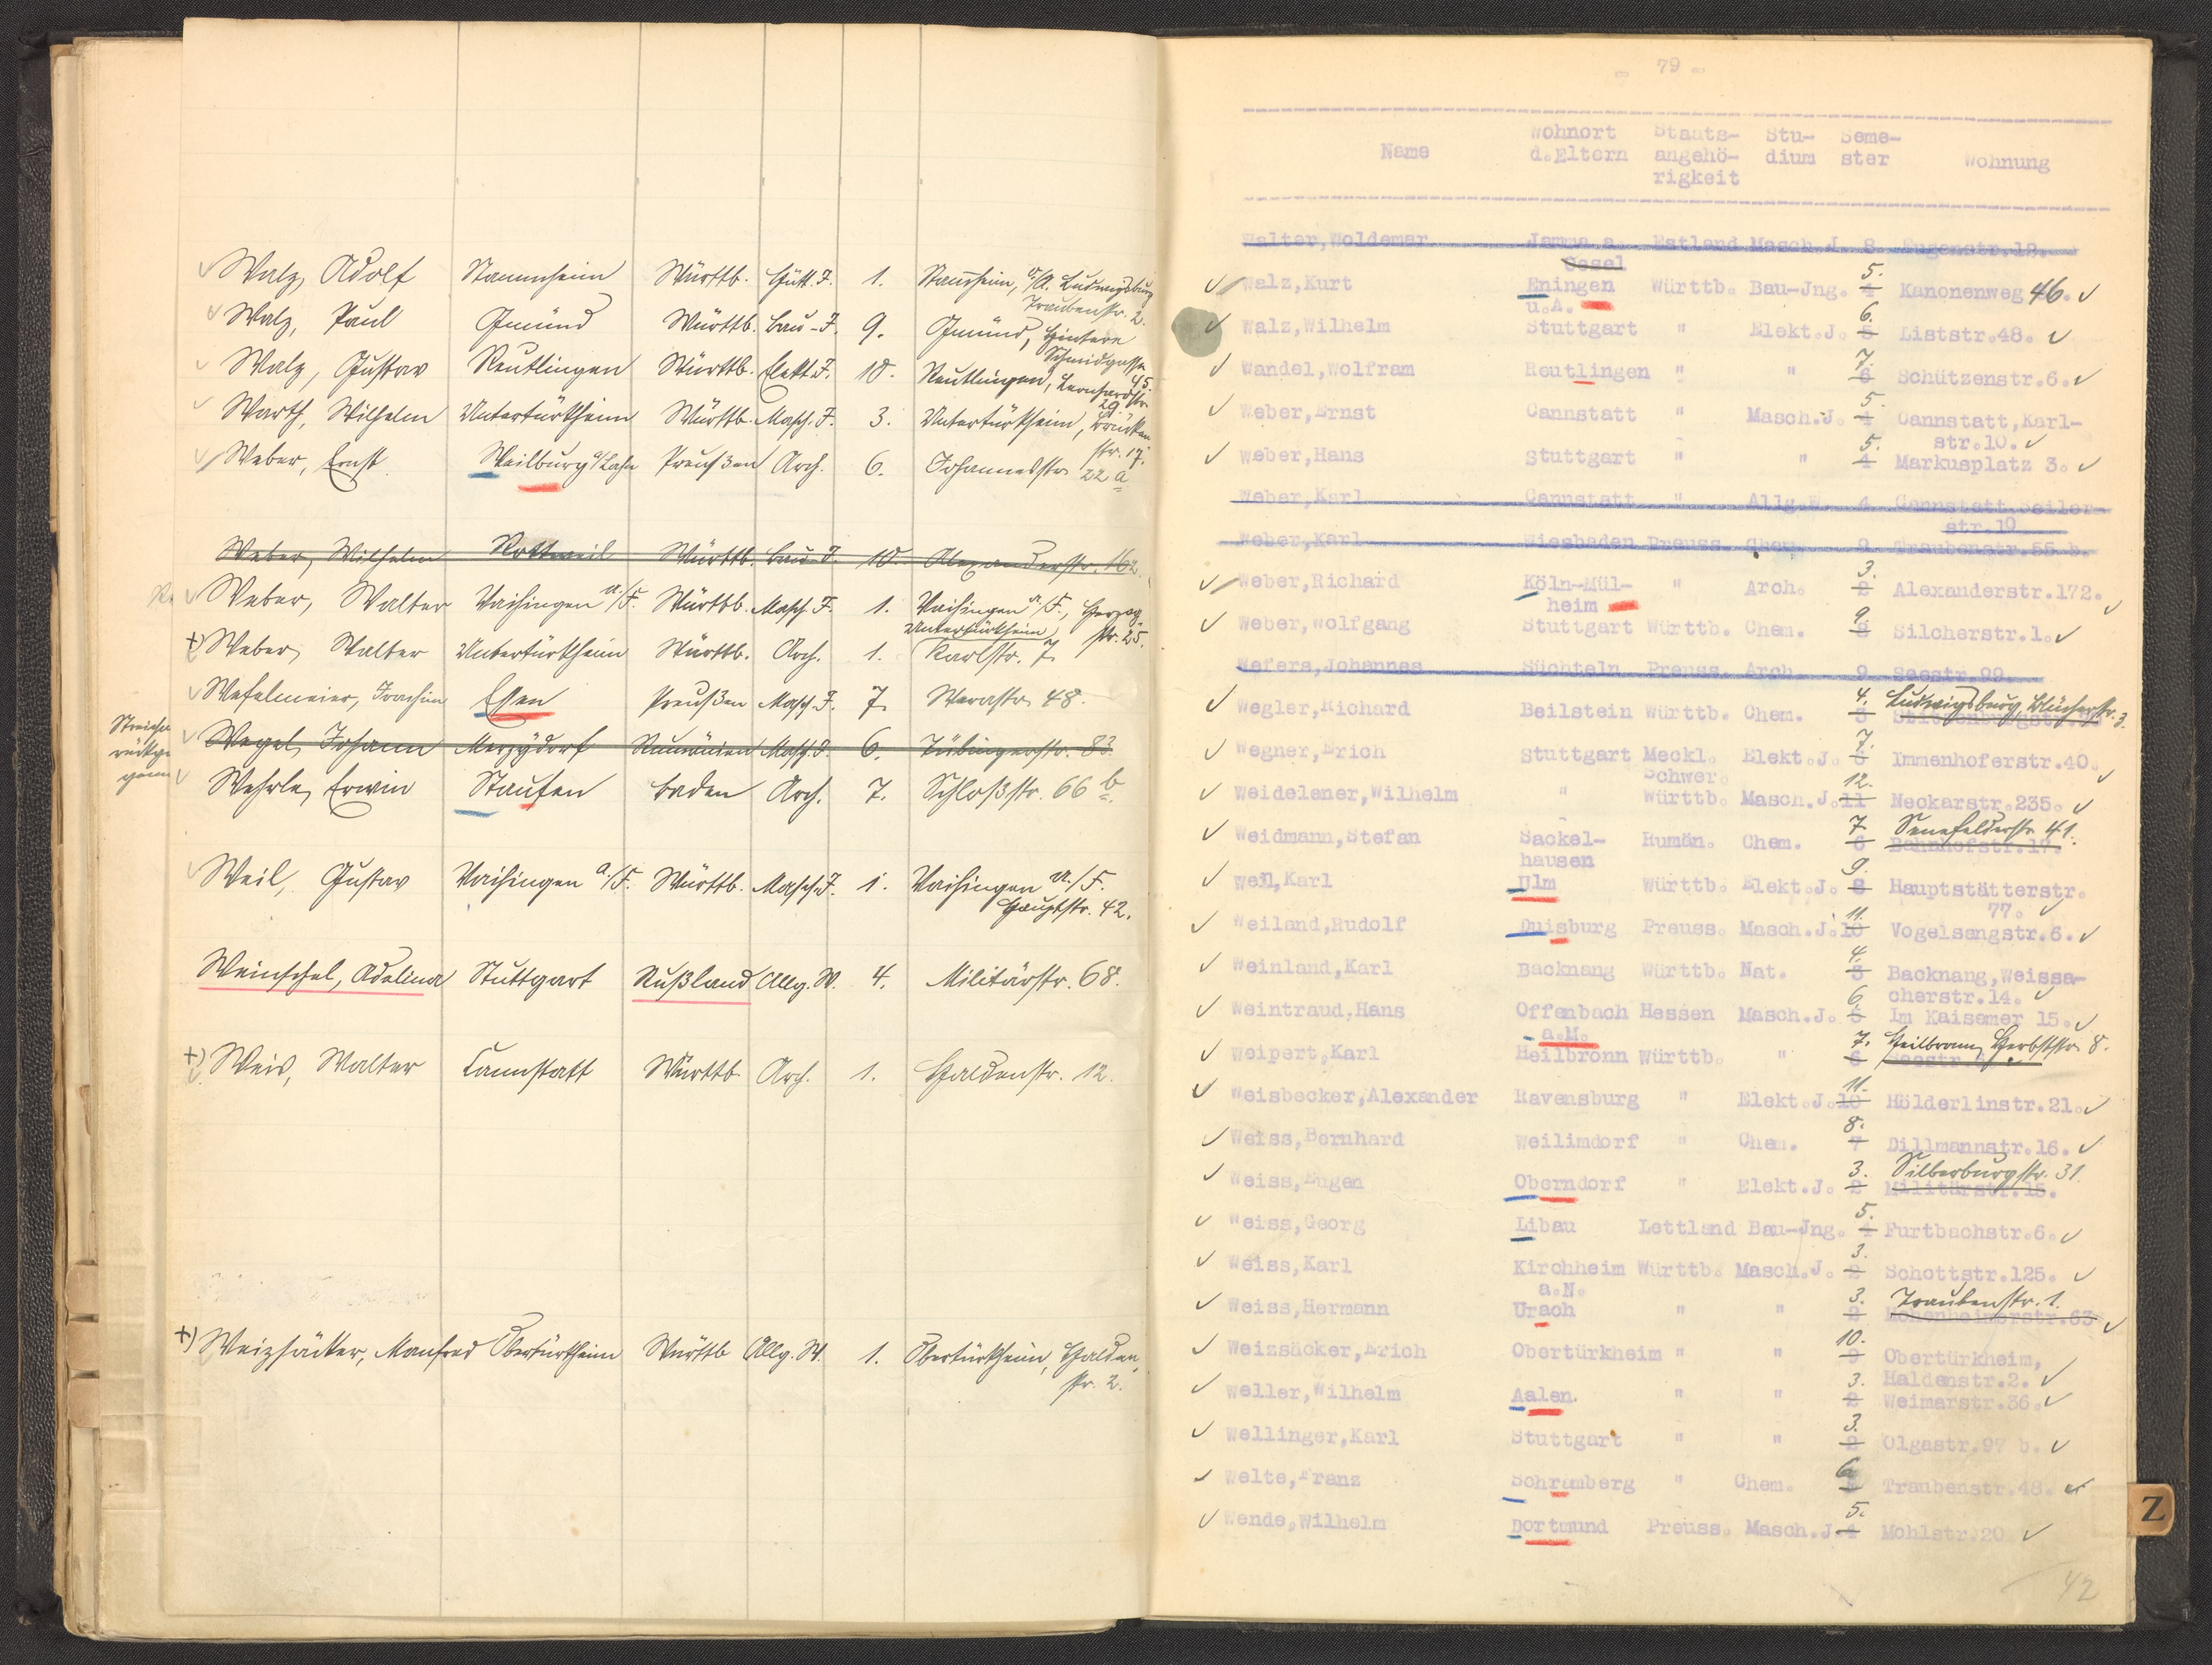 Walz, Adolf Stammheim Württb. Hütt. J. 1. Stammheim, O/A. Ludwigsburg
Traubenstr. 2.
Walz, Paul Gmünd Württb. Bau-J. 9. Gmünd, Hintere
Schmidgasse
45.
Walz, Gustav Reutlingen Württb. Elekt. J. 10. Reutlingen, Leonhardstr.
29.
Warth, Wilhelm Untertürkheim Württb. Masch. J. 3. Untertürkheim, Brücken-
str. 17.
Weber, Ernst Weilburg a/Lahn Preußen Arch. 6. Johannesstr. 22 a
Weber, Wilhelm Rottweil Württb. Bau-J. 10. Alexanderstr. 162.
Weber, Walter Vaihingen a./F. Württb. Masch. J. 1. Vaihingen a./F., Herzog-
str. 25.
Untertürkheim,
Weber, Walter Untertürkheim Württb. Arch. 1. Karlstr. 7
Wefelmeier, Joachim Essen Preußen Masch. J. 7. Werastr. 48.
Wegel, Johann Mercydorf Rumänien Masch. J. 6. Tübingerstr. 83.
Wehrle, Erwin Staufen Baden Arch. 7. Schloßstr. 66 b.
Weil, Gustav Vaihingen a./F. Württb. Masch. J. 1. Vaihingen a./F.
Hauptstr. 42.
Weinschel, Adelina Stuttgart Rußland Allg. W. 4. Militärstr. 68.
+) Weis, Walter Cannstatt Württb. Arch. 1. Haldenstr. 12.
+) Weizsäcker, Manfred Obertürkheim Württb. Allg. W. 1. Obertürkheim, Halden-
str. 2.
- 79 -
Wohnort Staats- Stu- Seme-
Name d.Eltern angehö- dium ster Wohnung
rigkeit
Walter,Woldemar Jamma a. Estland Masch.J. 8. Eugenstr.18.
Oesel
5.
Walz,Kurt Eningen Württb. Bau-Jng. 4 Kanonenweg 46.
u.A.
6.
Walz,Wilhelm Stuttgart " Elekt.J. 5 Liststr.48.
7.
Wandel,Wolfram Reutlingen " " 6 Schützenstr.6.
5.
Weber,Ernst Cannstatt " Masch.J. 4 Cannstatt,Karl-
str.10.
5.
Weber,Hans Stuttgart " " 4 Markusplatz 3.
Weber,Karl Cannstatt " Allg.W. 4 Cannstatt,Seiler-
str.10
Weber,Karl Wiesbaden Preuss. Chem. 9 Traubenstr.55 b.
3.
Weber,Richard Köln-Mül- " Arch. 2 Alexanderstr.172.
heim
9
Weber,Wolfgang Stuttgart Württb. Chem. 8 Silcherstr.1.
Wefers,Johannes Süchteln Preuss. Arch. 9. Seestr.99.
4. Ludwigsburg, Blücherstr. 3.
Wegler,Richard Beilstein Württb. Chem. 3
7.
Wegner,Erich Stuttgart Meckl. Elekt.J. 6 Immenhoferstr.40.
Schwer.
12.
Weidelener,Wilhelm " Württb. Masch.J. 11 Neckarstr.235.
7 Senefelderstr. 41.
Weidmann,Stefan Sackel- Rumän. Chem. 6 Bahnhofstr.17.
hausen
9.
Weil,Karl Ulm Württb. Elekt.J. 8 Hauptstätterstr.
77.
11.
Weiland,Rudolf Duisburg Preuss. Masch.J. 10 Vogelsangstr.6.
4.
Weinland,Karl Backnang Württb. Nat. 3 Backnang,Weissa-
cherstr.14.
6.
Weintraud,Hans Offenbach Hessen Masch.J. 5 Im Kaisemer 15.
a.M.
7. Heilbronn, Herbststr. 8.
Weipert,Karl Heilbronn Württb. " 6
11.
Weisbecker,Alexander Ravensburg " Elekt.J. 10 Hölderlinstr.21.
8.
Weiss,Bernhard Weilimdorf " Chem. 7 Dillmannstr.16.
3. Silberburgstr. 31.
Weiss,Eugen Oberndorf " Elekt.J. 2 Militärstr.15.
5.
Weiss,Georg Libau Lettland Bau-Jng. 4 Furtbachstr.6.
3.
Weiss,Karl Kirchheim Württb. Masch.J. 2 Schottstr.125.
a.N.
3. Traubenstr. 1.
Weiss,Hermann Urach " " 2 Hohenheimerstr.63
10.
Weizsäcker,Erich Obertürkheim " " 9 Obertürkheim,
Haldenstr.2.
3.
Weller,Wilhelm Aalen. " " 2 Weimarstr.36.
3.
Wellinger,Karl Stuttgart " " 2 Olgastr.97 b.
6
Welte,Franz Schramberg " Chem. Traubenstr.48.
5.
Wende,Wilhelm Dortmund Preuss. Masch.J. 4 Mohlstr.20
Z
42